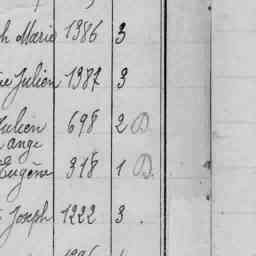 h Marie 1986 3
ue Julien 1987 3
Julien 698 2 D.
ange
Eugène 318 1 D.
Joseph 1222 3